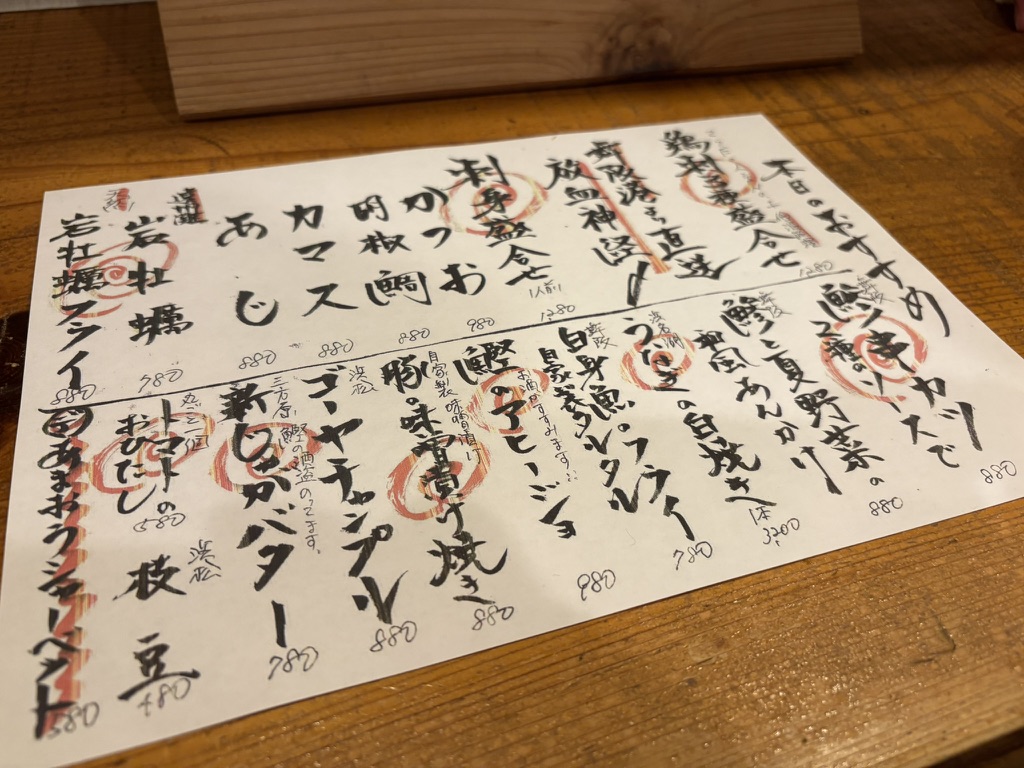 本日のおすすめ
鶏刺し盛合せ
1280
舞阪港から直送
放血神経〆
刺身盛合せ
1人前
1280
かつお
980
胡椒鯛
880
カマス
880
あじ
880
岩牡蠣
780
岩牡蠣フライ
880
舞阪
串カツ
2種のソースで
880
舞阪
鯵と夏野菜の
和風あんかけ
880
浜名湖
うなぎの白焼き
1本
3200
舞阪
白身魚のフライ
自家製タルタル
780
鰹のアヒージョ
お酒がすすみます
980
自家製味噌漬け
豚の味噌漬け焼き
880
浜松
ゴーヤチャンプル
880
三方原
新じゃがバター
鰹の酒盗のってます。
780
丸ごと1個
トマトの
おひたし
580
浜松
枝豆
480
あまおうシャーベット